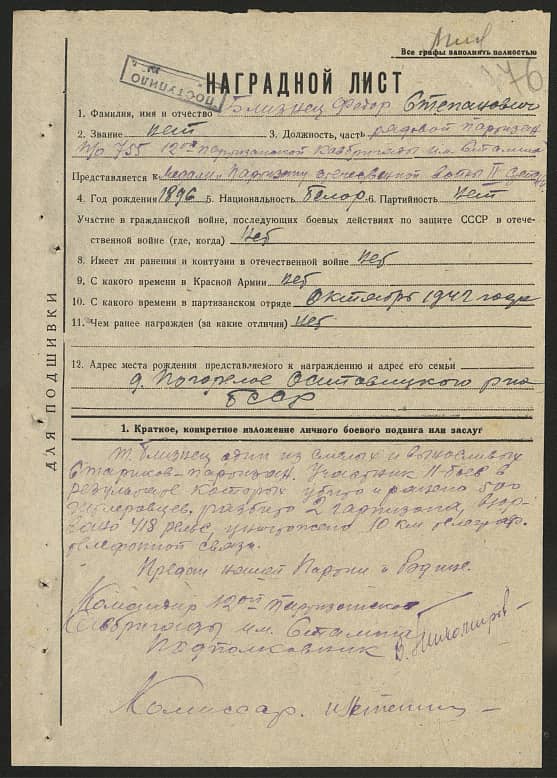 Все графы заполнять полностью
176
ПОСТУПИЛО
НАГРАДНОЙ ЛИСТ
1. Фамилия, имя и отчество Близнец Федор Степанович
2. Звание нет 3. Должность, часть рядовой партизан
п/о 755 120й партизанской бригады им. Сталина
Представляется к медали "Партизану отечественной войны II степени"
4. Год рождения 1896 5. Национальность белор 6. Партийность нет
Участие в гражданской войне, последующих боевых действиях по защите СССР в отече-
ственной войне (где, когда) нет
8. Имеет ли ранения и контузии в отечественной войне нет
9. С какого времени в Красной Армии нет
10. С какого времени в партизанском отряде Октябрь 1942 года
11. Чем ранее награжден (за какие отличия) нет
12. Адрес места рождения представляемого к награждению и адрес его семьи
д. Погорелое Осиповицкого р-на
БССР
ДЛЯ ПОДШИВКИ
1. Краткое, конкретное изложение личного боевого подвига или заслуг
т. Близнец один из смелых и выносливых
стариков-партизан. Участник 11 боев в
результате которых убито и ранено 500
гитлеровцев. разбито 2 гарнизона, взор-
вано 418 рельс, уничтожено 10 км телеграф.
телефонной связи.
Предан нашей Партии и Родине.
Командир 120й партизанской
бригады им. Сталина
подполковник
Комиссар